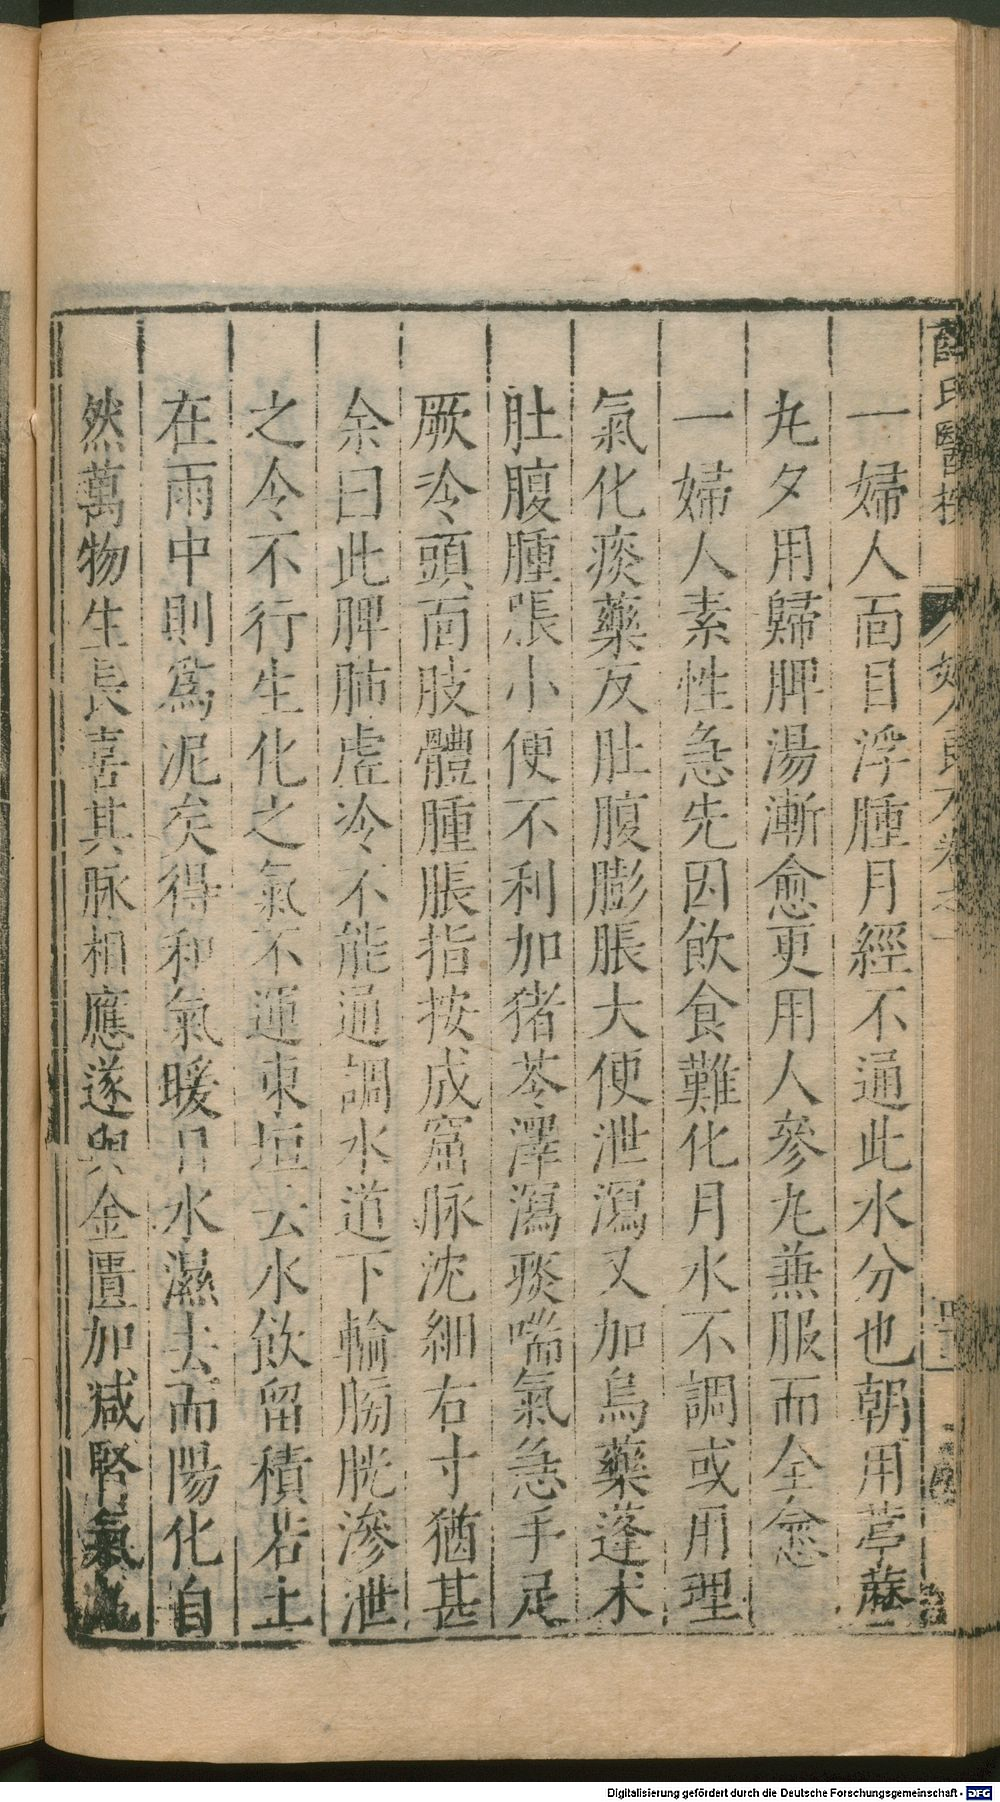 一婦人面目浮腫月經不通此水分也朝用葶藶
丸夕用歸脾湯漸愈更用人參丸兼服而全愈
一婦人素性急先因飲食難化月水不調或用理
氣化痰藥反肚腹膨脹大便泄瀉又加烏藥蓬朮
肚腹腫脹小便不利加猪苓澤瀉痰喘氣急手足
厥冷頭面肢體腫脹指按成窟脉沈細右寸猶甚
余曰此脾肺虛冷不能通調水道下輸膀胱滲泄
之令不行生化之氣不運東垣云水飲留積若土
在雨中則爲泥矣得和氣暖日水濕去而陽化自
然萬物生長喜其脉相應遂與金匱加减腎氣丸
薛氏醫按
校註婦人良方卷之一
Digitalisierung gefördert durch die Deutsche Forschungsgemeinschaft - DFG